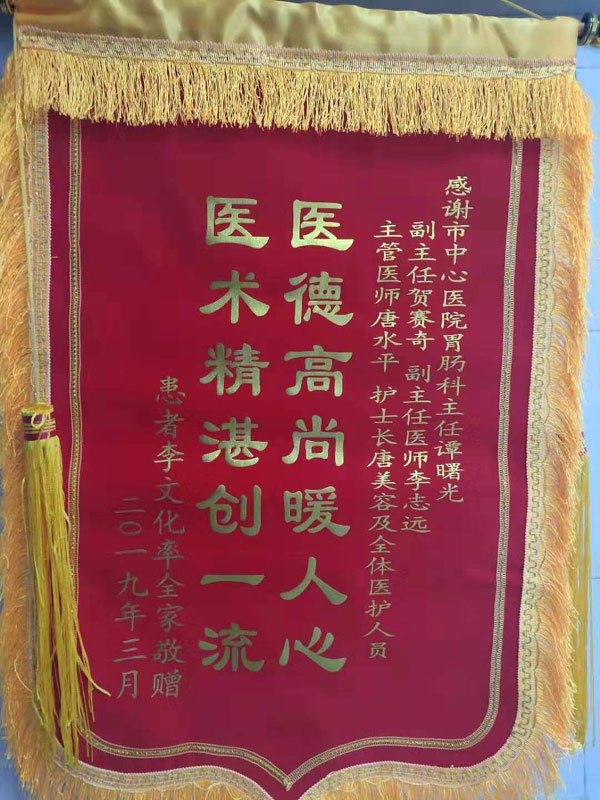 感谢市中心医院胃肠科主任谭曙光
副主任贺赛奇 副主任医师李志远
主管医师唐水平 护士长唐美容及全体医护人员
医德高尚暖人心
医术精湛创一流
患者李文化率全家敬赠
二〇一九年三月